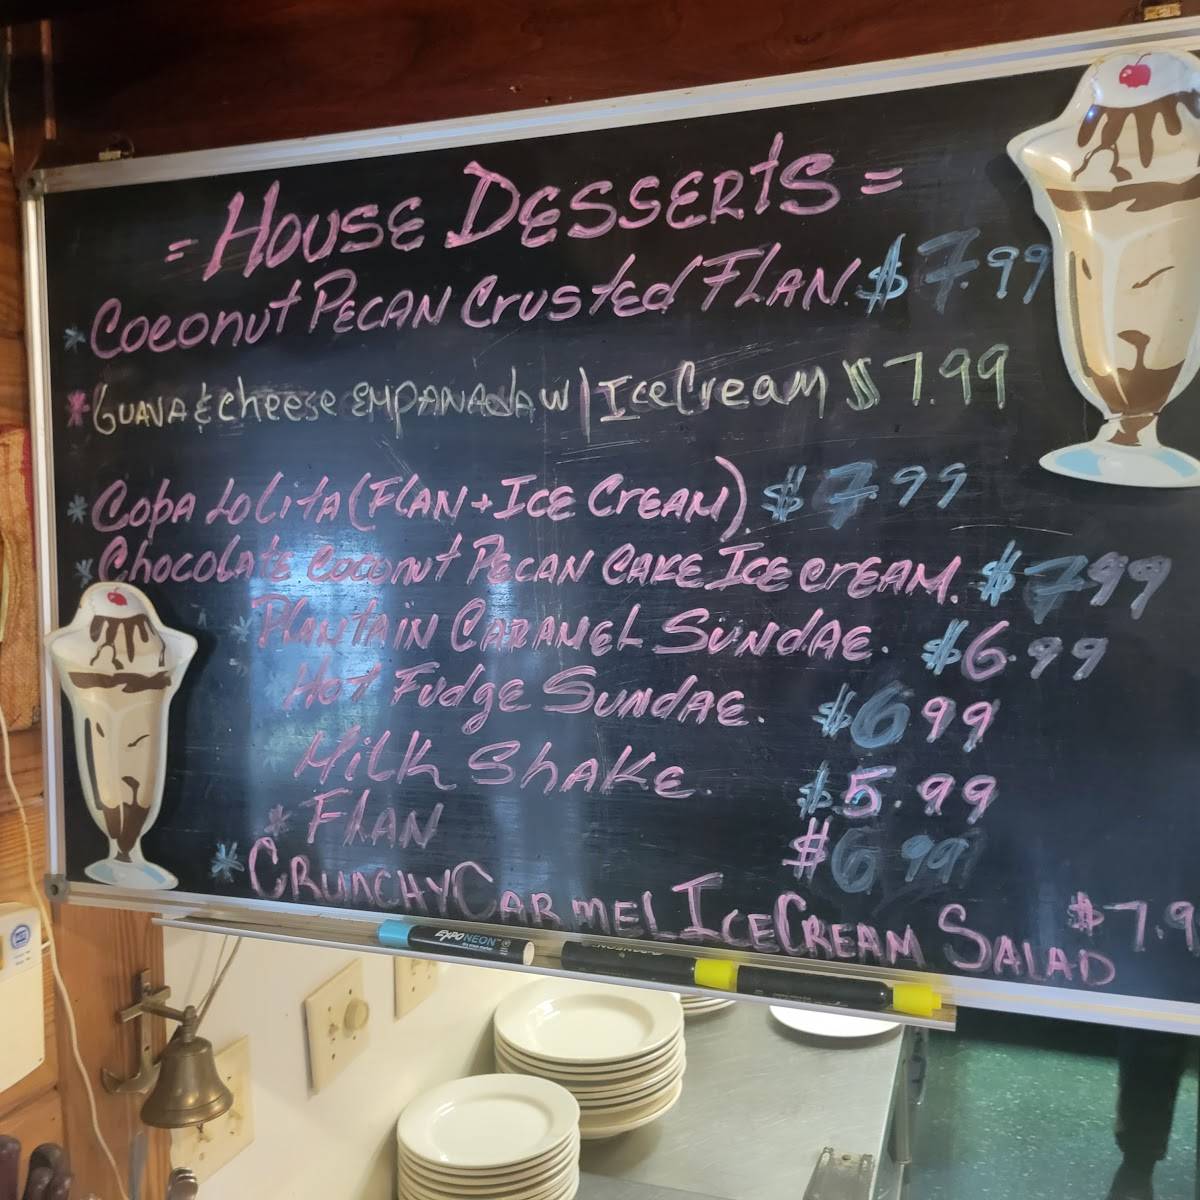 = HOUSE DESSERTS =
* Coconut PECAN Crusted FLAN. $7.99
* GUAVA & cheese EMPANADA W/ IceCream $7.99
* Copa LoLita (FLAN + ICE CREAM). $7.99
* Chocolate Coconut PECAN CAKE ICE CREAM. $7.99
* Plantain CARAMEL SUNDAE. $6.99
Hot Fudge SUNDAE. $6.99
Milk Shake. $5.99
* FLAN $6.99
* CRUNCHY CARMEL ICE CREAM SALAD $7.9
EXPO NEON